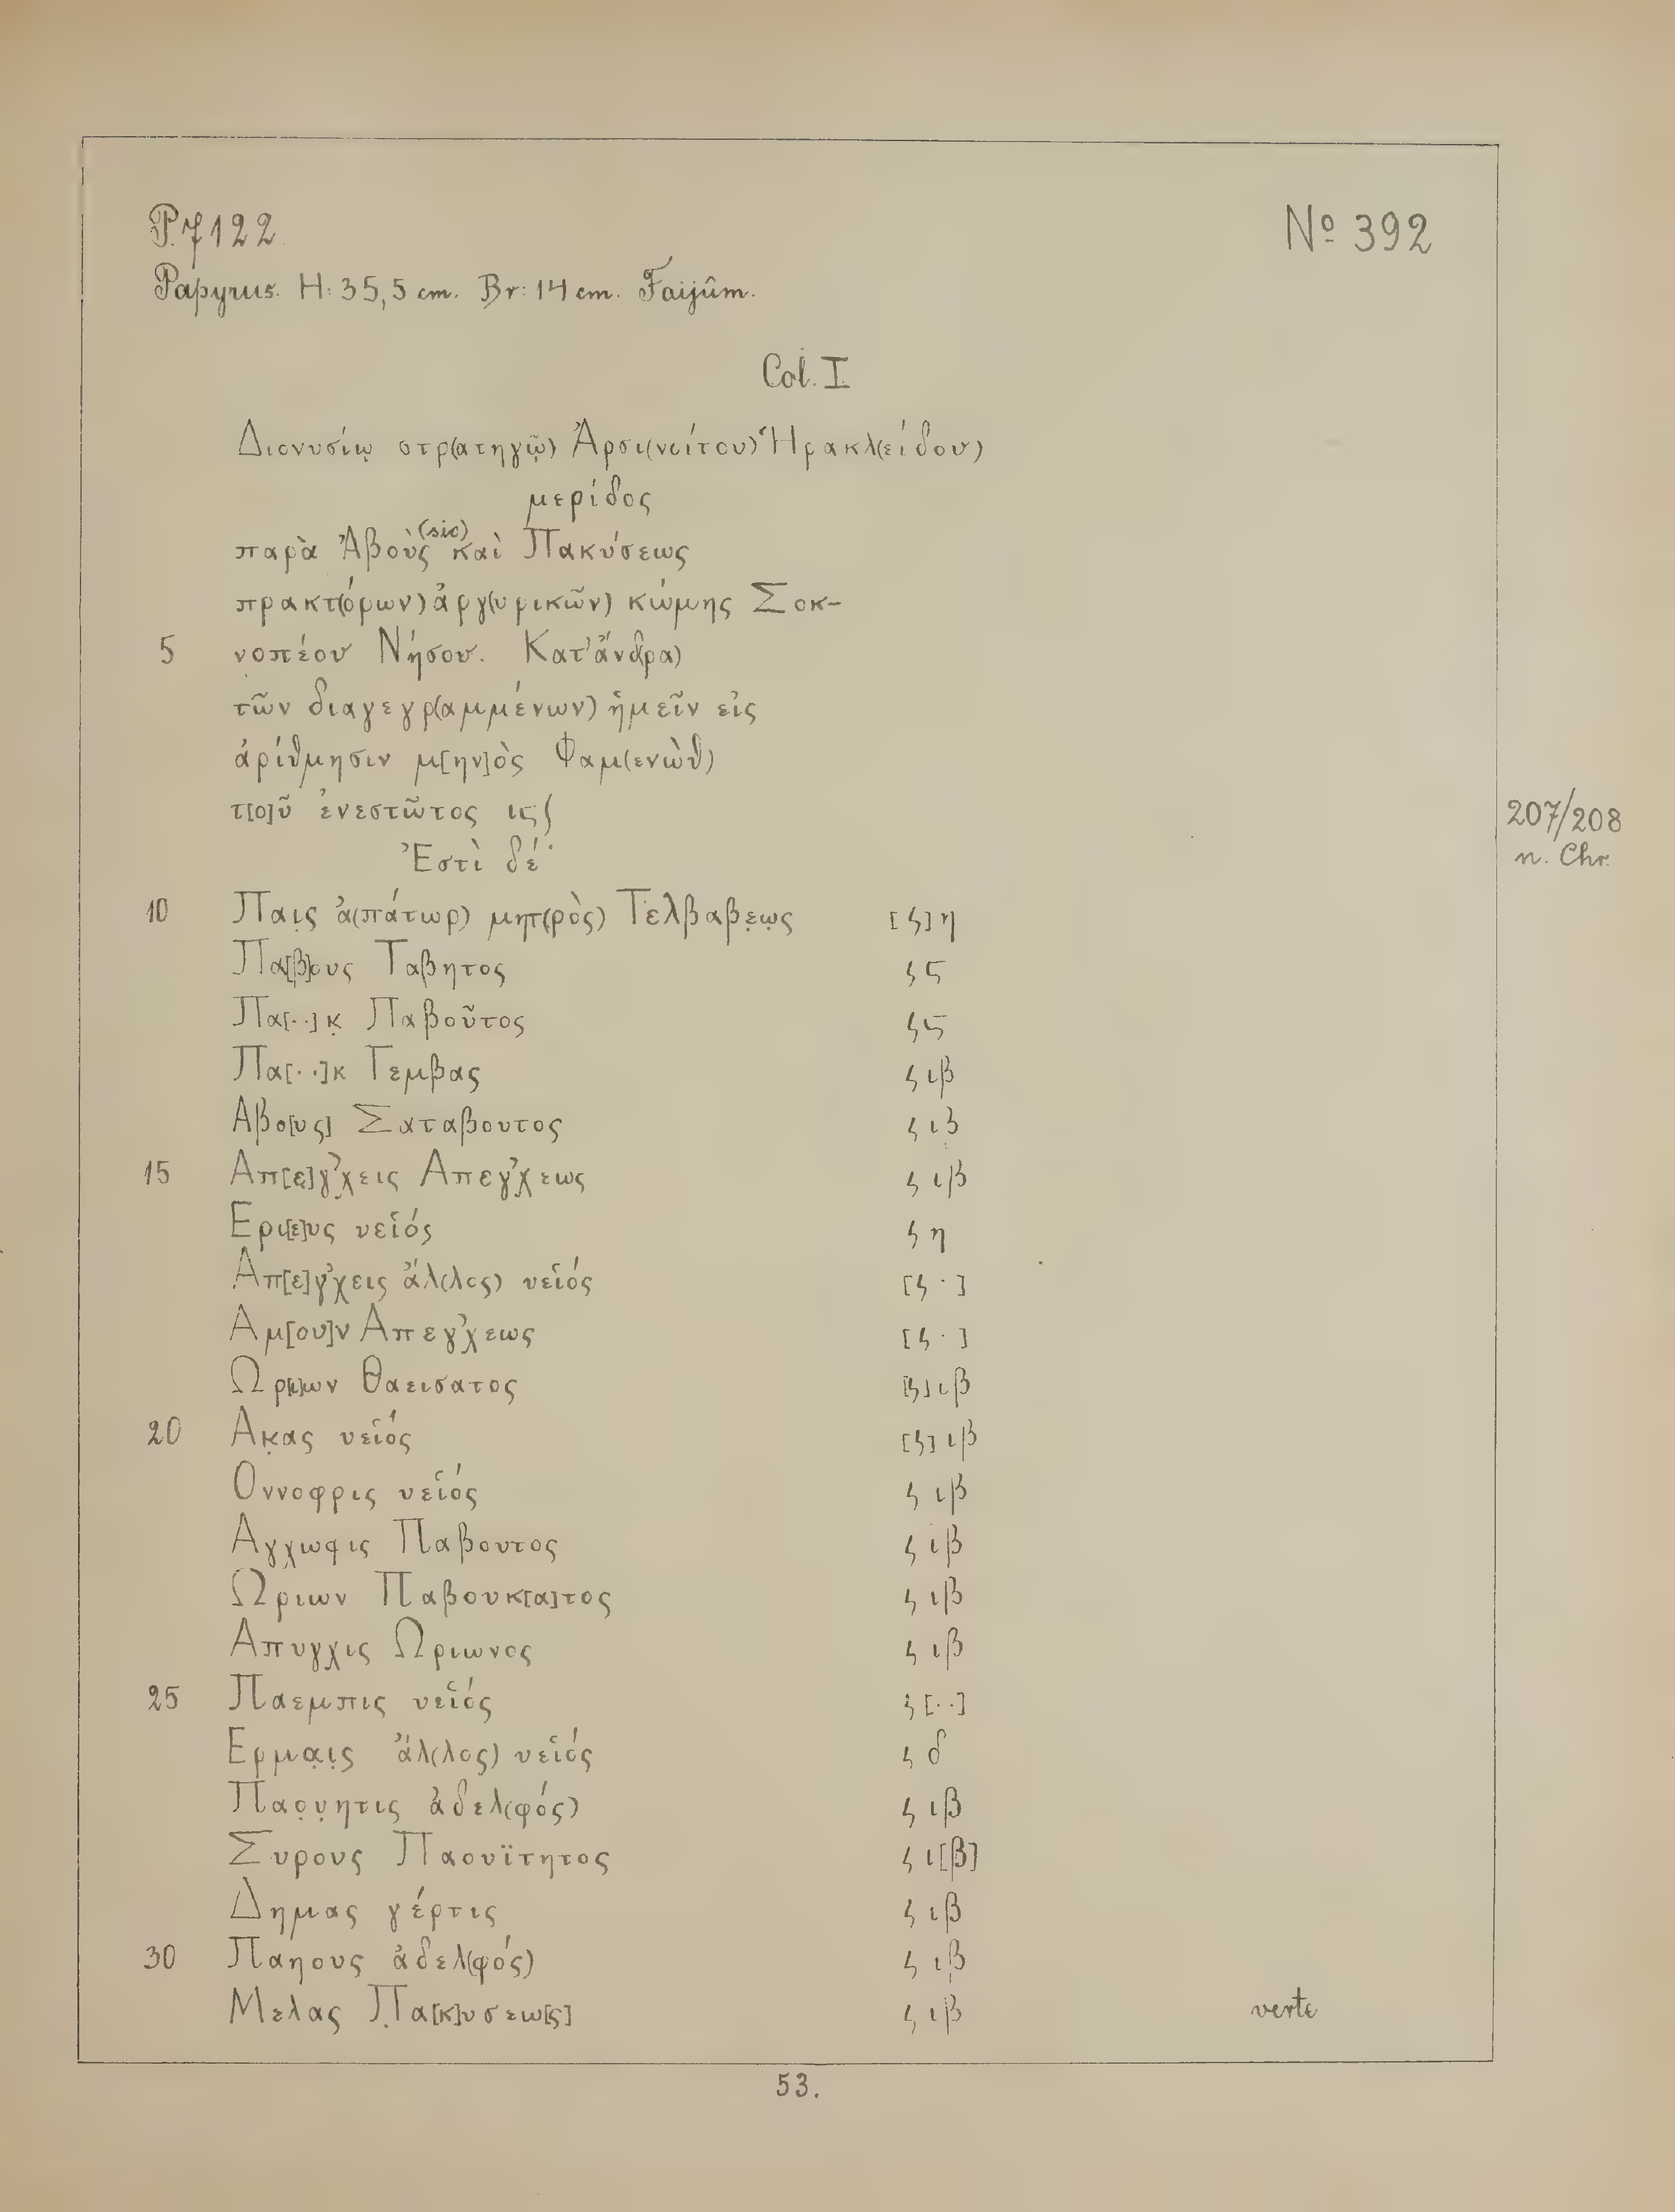 P. 7122. Nº 392
Papyrus. H: 35,5 cm. Br: 14 cm. Faijûm.
Col. I
Διονυσίῳ στρ(ατηγῷ) Ἀρσι(νοίτου) Ἡρακλ(είδου)
μερίδος
παρὰ Ἀβοὺς (sic) καὶ Πακύσεως
πρακτ(όρων) ἀργ(υρικῶν) κώμης Σοκ-
5 νοπέου Νήσου. Κατ' ἄνδ(ρα)
τῶν διαγεγρ(αμμένων) ἡμεῖν εἰς
ἀρίθμησιν μ[ην]ὸς Φαμ(ενὼθ)
τ[ο]ῦ ἐνεστῶτος ιϛ ∫ 207/208
n. Chr.
Ἐστὶ δέ·
10 Παις ἀ(πάτωρ) μητ(ρὸς) Τελβαβεως [ϟ] η
Πα[β]ους Ταβητος ϟ ϛ
Πα[··]κ Παβοῦτος ϟ ϛ
Πα[··]κ Τεμβας ϟ ιβ
Αβο[υς] Σαταβουτος ϟ ιβ
15 Απ[ε]γ'χεις Απεγ'χεως ϟ ιβ
Ερι[ε]υς υεἱός ϟ η
Απ[ε]γ'χεις ἄλ(λος) υεἱός [ϟ ·]
Αμ[ου]ν Απεγ'χεως [ϟ ·]
Ωρ[ι]ων Θαεισατος [ϟ] ιβ
20 Ακας υεἱός [ϟ] ιβ
Οννοφρις υεἱός ϟ ιβ
Αγχωφις Παβουτος ϟ ιβ
Ωριων Παβουκ[α]τος ϟ ιβ
Απυγχις Ωριωνος ϟ ιβ
25 Παεμπις υεἱός ϟ [··]
Ερμαις ἄλ(λος) υεἱός ϟ δ
Παουητις ἀδελ(φός) ϟ ιβ
Συρους Παουϊτητος ϟ ι[β]
Δημας γέρτις ϟ ιβ
30 Παηους ἀδελ(φός) ϟ ιβ
Μελας Πα[κ]υσεω[ς] ϟ ιβ verte
53.